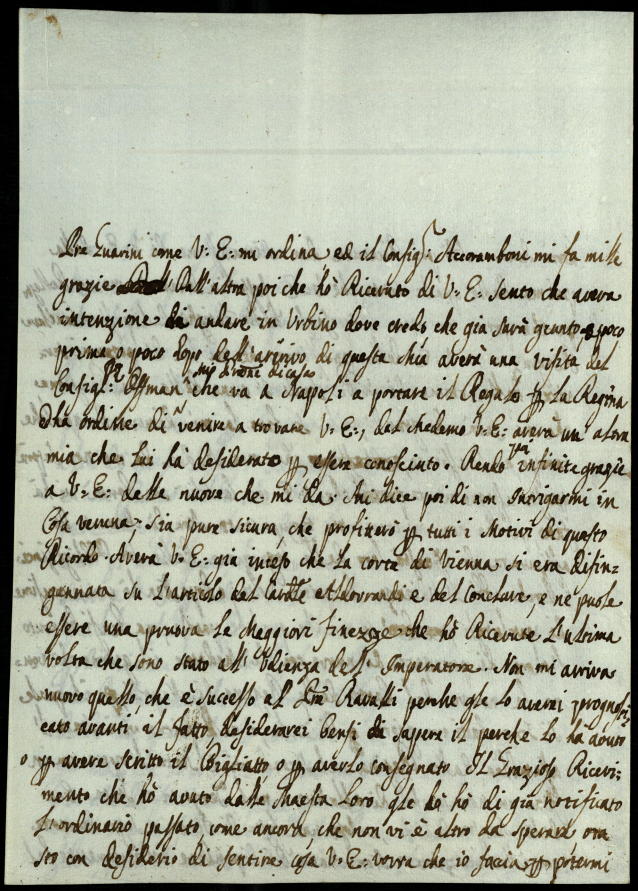 Pre Guarini come V: E: mi ordina ed il Consigr: Accoramboni mi fa mille
grazie. Dall'altra poi che hò Ricevuto di V: E: sento che aveva
intenzione di andare in Urbino dove credo che già sarà giunto poco
prima, o poco dopo dell'arrivo di questa mia averà una visita del
mio Prone di casa
Consigr: Offman che va a Napoli a portare il Regalo p la Regina
ordine di venire a trovare V: E:, dal medemo V: E: averà un altra
mia che lui hà desiderato p essere conosciuto. Rendo poi infinite grazie
a V: E: delle nuove che mi da. Mi dice poi di non intrigarmi in
Cosa veruna, sia pure sicura, che profitterò p tutti i Motivi di questo
Ricordo. Averà V: E: già inteso che la corte di Vienna si era disin-
gannata su l'articolo del Cardle Aldovrandi e del Conclave, e ne puole
essere una pruova le Maggiori finezze che hò Ricevute l'ultima
volta che sono stato all'Udienza dell'Imperatore. Non mi arriva
nuovo quello, che è successo al Ravalli perche gle lo averei prognosti-
cato avanti il fatto, desiderarei bensi di sapere il perche lo ha avuto
o p avere scritto il Biglietto, o p averlo consegnato. Il Grazioso Ricevi-
mento che hò avuto dalle Maestà loro gle hò di già notificato
l'ordinario passato, come ancora, che non vi è altro da sperare ora
sto con desiderio di sentire cosa V: E: vorrà che io facia p potermi